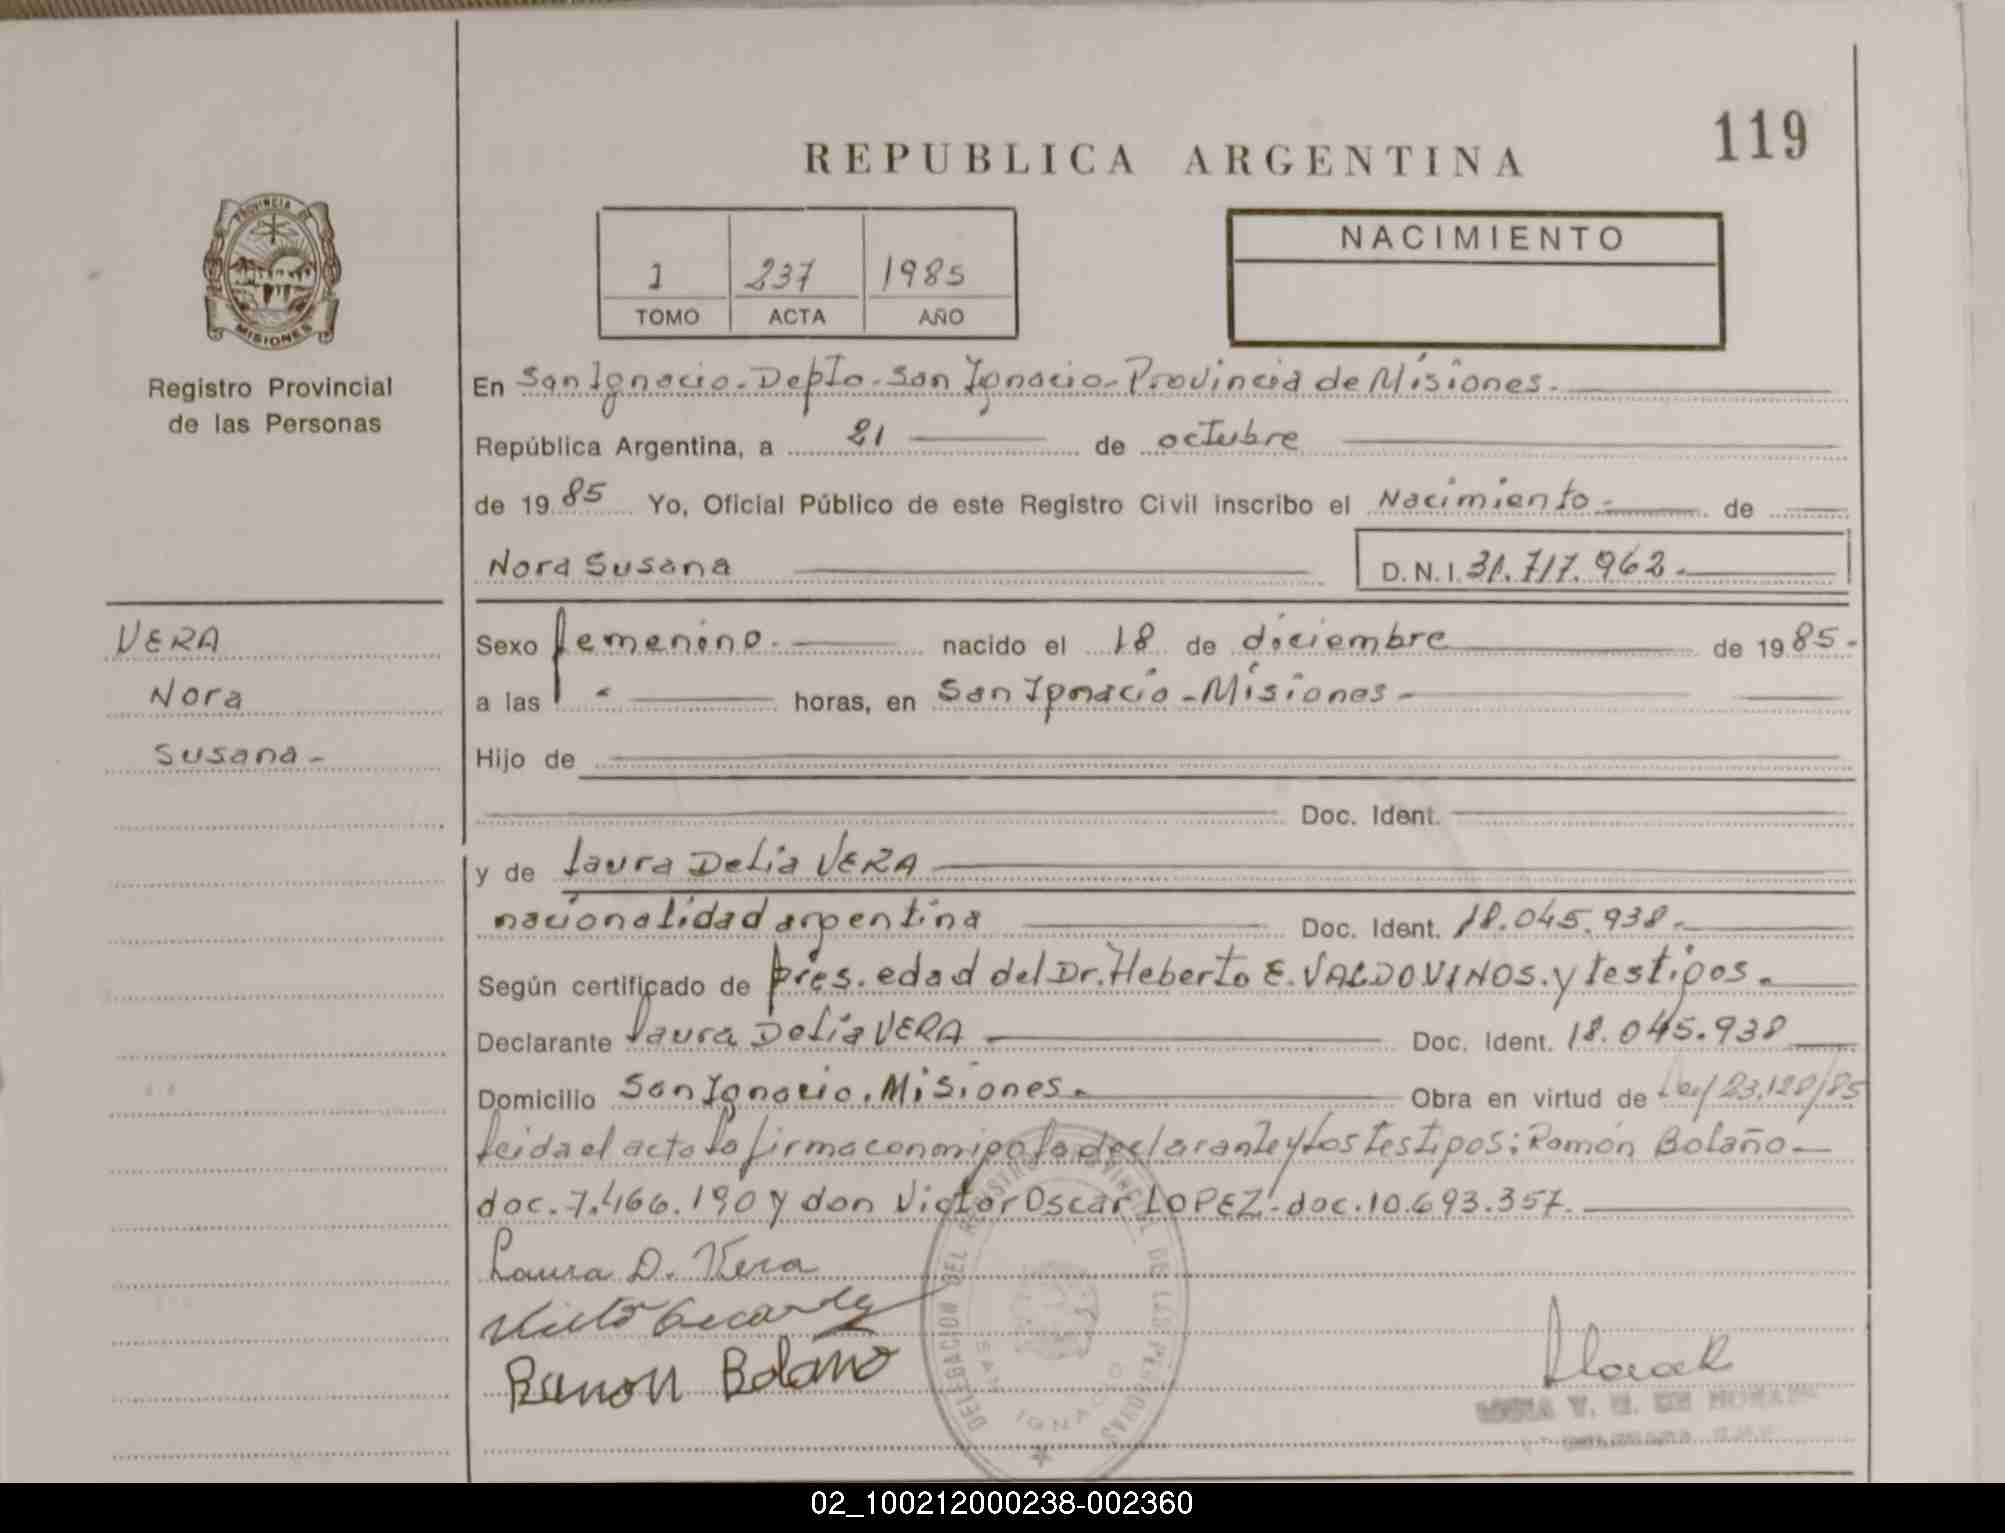 119
REPUBLICA ARGENTINA
PROVINCIA DE
MISIONES
Registro Provincial
de las Personas
1 237 1985
TOMO ACTA AÑO
NACIMIENTO
En San Ignacio. Depto. San Ignacio. Provincia de Misiones.
República Argentina, a 21 de octubre
de 1985 Yo, Oficial Público de este Registro Civil inscribo el Nacimiento. de
Nora Susana D.N.I. 31.717.962.
VERA
Nora
Susana-
Sexo femenino. nacido el 18 de diciembre de 1985-
a las horas, en San Ignacio - Misiones-
Hijo de
Doc. Ident.
y de Laura Delia VERA
nacionalidad argentina Doc. Ident. 18.045.938.
Según certificado de pres. edad del Dr. Heberto E. VALDOVINOS. y testigos.
Declarante Laura Delia VERA Doc. Ident. 18.045.938
Domicilio San Ignacio. Misiones. Obra en virtud de Ley 23.128/85
leida el acta la firma conmigo la declarante y los testigos: Ramón Bolaño-
doc. 7.466.190 y don Victor Oscar LOPEZ. doc. 10.693.357.
Laura D. Vera
Ramon Bolano
DELEGACION DEL REGISTRO PROVINCIAL DE LAS PERSONAS
SAN IGNACIO
02_100212000238-002360